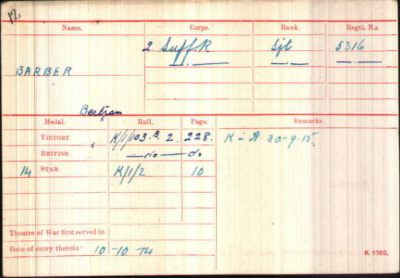 Name. Corps. Rank. Regtl. No.
2 Suff R Sjt 5316
BARBER
Bertram
Medal. Roll. Page. Remarks.
VICTORY K/1/103.B.2. 228. K in A 30-9-15
BRITISH —do— do
14 STAR K/1/2 10
Theatre of War first served in
Date of entry therein 10-10-14
K 1380.